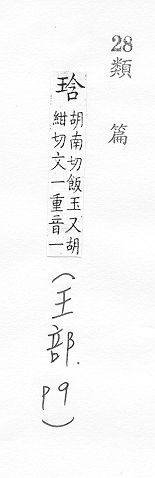 28
類篇
琀胡南切飯玉又胡
紺切文一重音一
(王部.
p9)